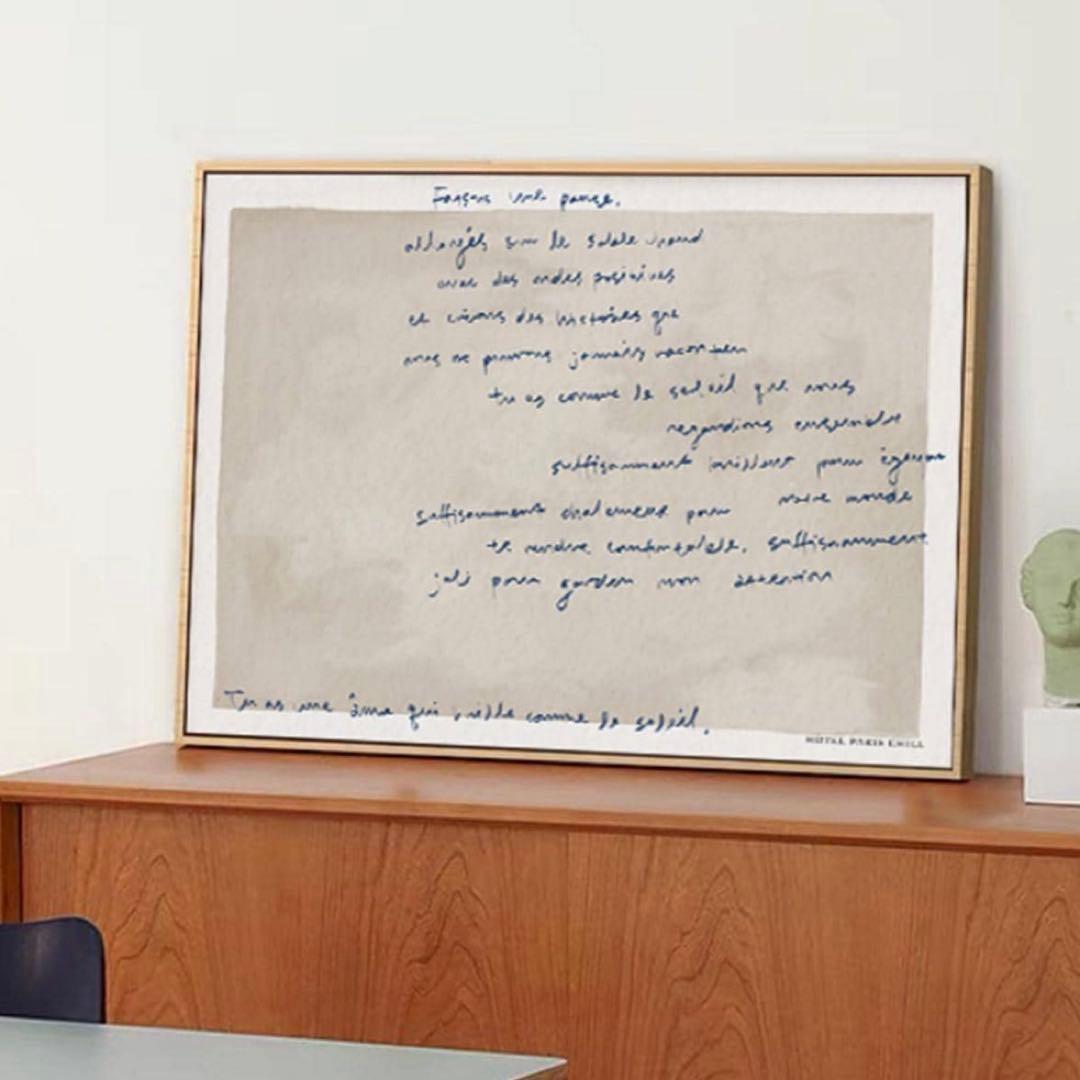 Faisons une pause,
allongés sur le sable chaud
avec des ondes positives
et créons des histoires que
nous ne pouvons jamais raconter
tu es comme le soleil que nous
regardions ensemble
suffisamment brillant pour égayer
notre monde
suffisamment chaleureux pour
te rendre confortable, suffisamment
joli pour garder mon attention
Tu as une âme qui brille comme le soleil.